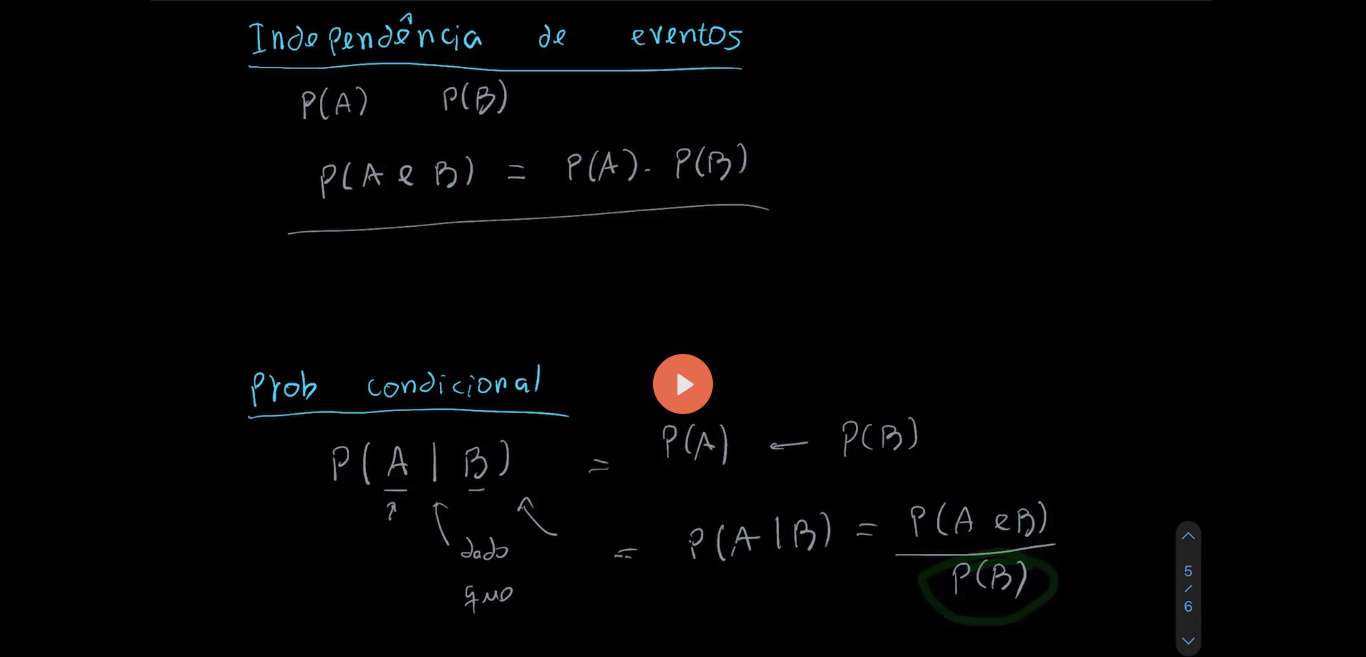 Independência de eventos
P(A) P(B)
P(A e B) = P(A). P(B)
Prob condicional
P(A | B) = P(A) ← P(B)
dado
que
= P(A | B) = P(A e B)
P(B)
5
/
6